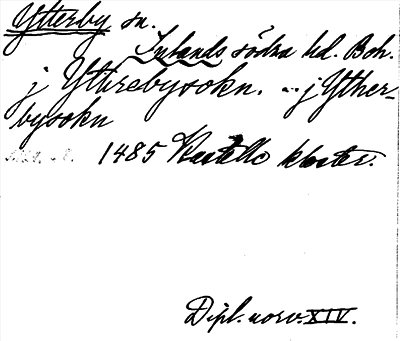 Ytterby sn.
Inlands södra hd. Boh.
j Ythrebysokn. ... j Yther-
bysokn
1485 Kastelle kloster.
Dipl. norv. XIV.